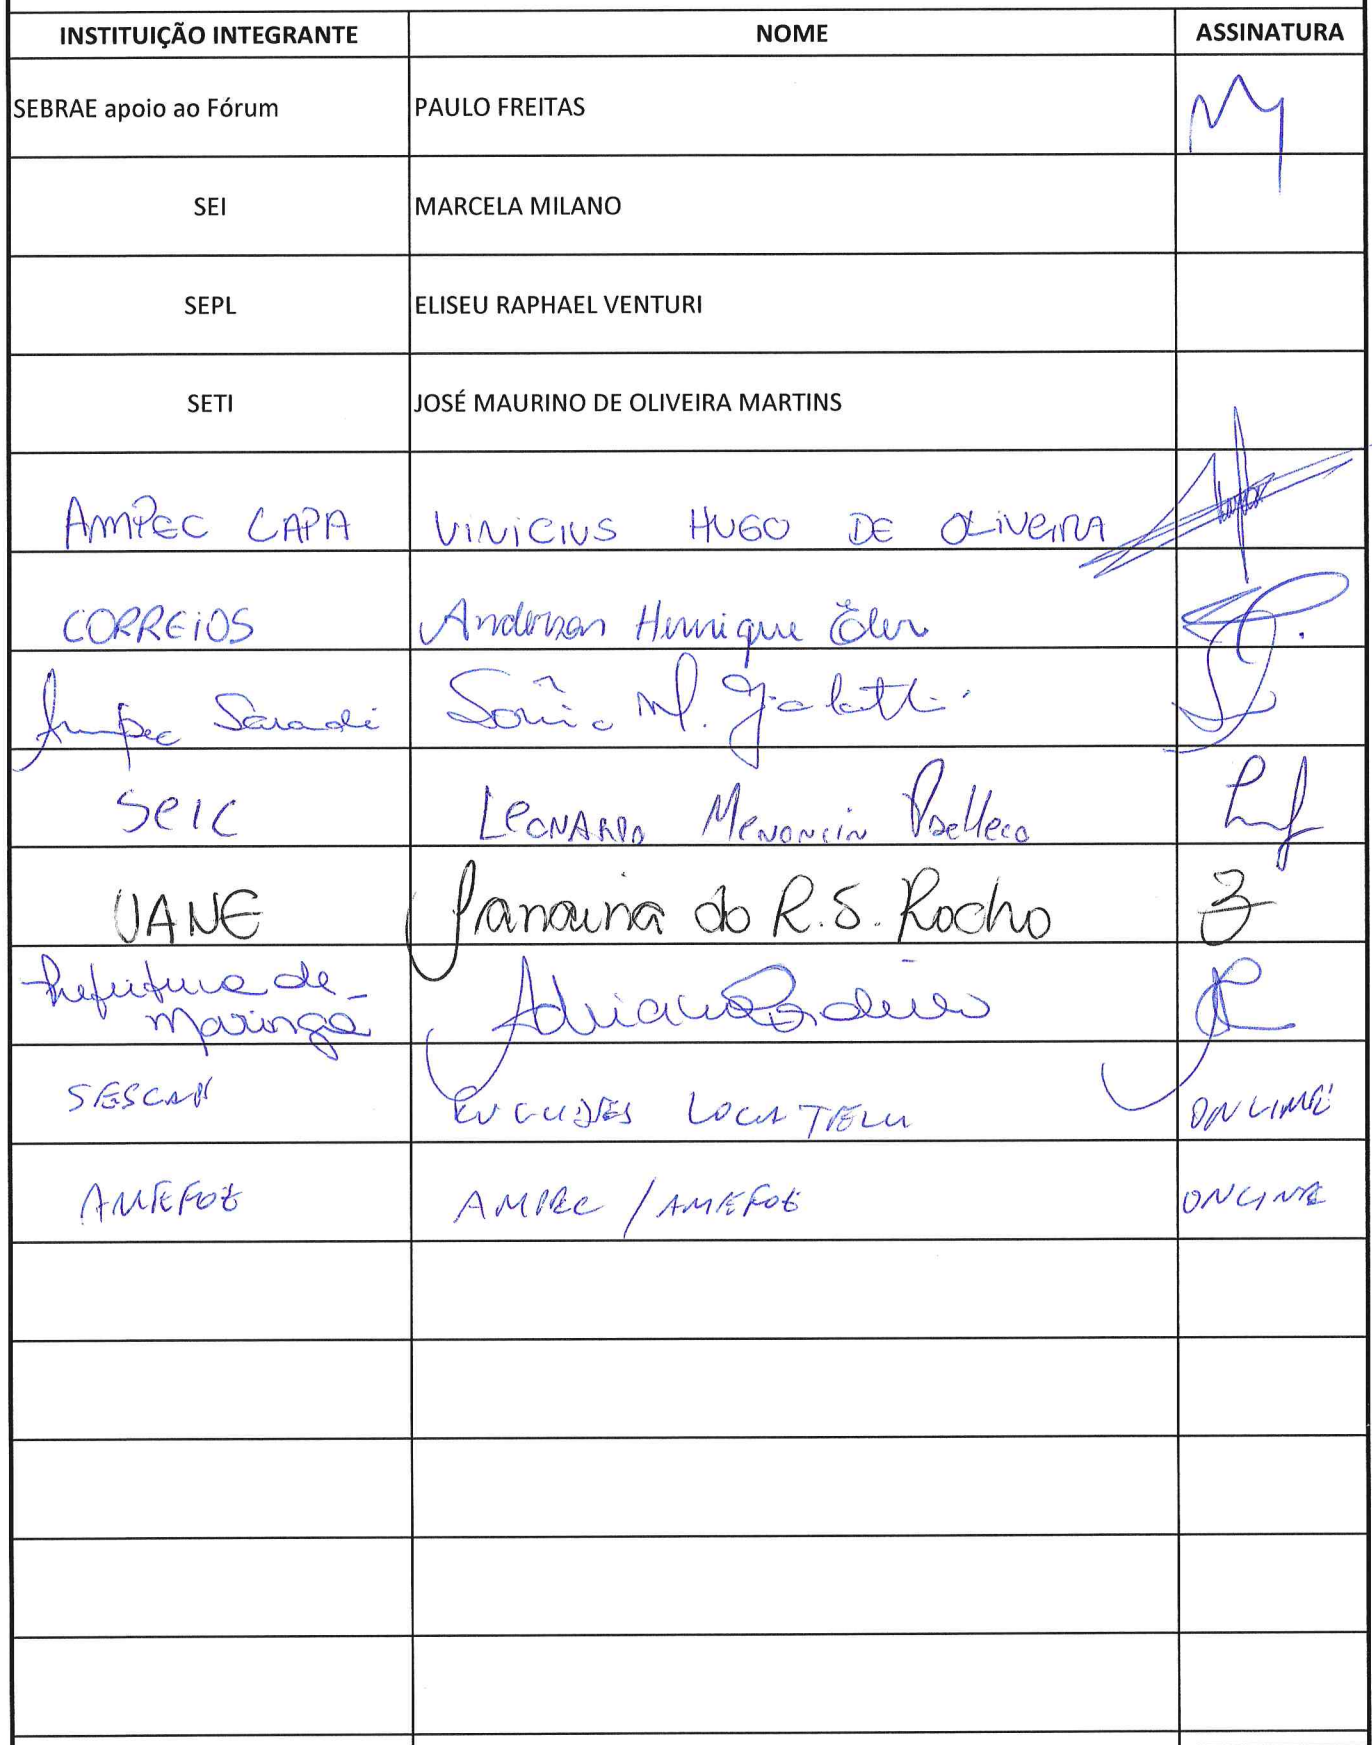 INSTITUIÇÃO INTEGRANTE NOME ASSINATURA
SEBRAE apoio ao Fórum PAULO FREITAS
SEI MARCELA MILANO
SEPL ELISEU RAPHAEL VENTURI
SETI JOSÉ MAURINO DE OLIVEIRA MARTINS
AMPEC LAPA VINICIUS HUGO DE OLIVEIRA
CORREIOS Anderson Henrique
Ampec Sarandi Sônia M.
SEIC LEONARDO Menoncin
UANE Janaina do R.S. Rocho
Prefeitura de
Maringá Adriana
EUCLIDES LOCATELLI ONLINE
AMEFOZ AMPEC / AMEFOZ ONLINE